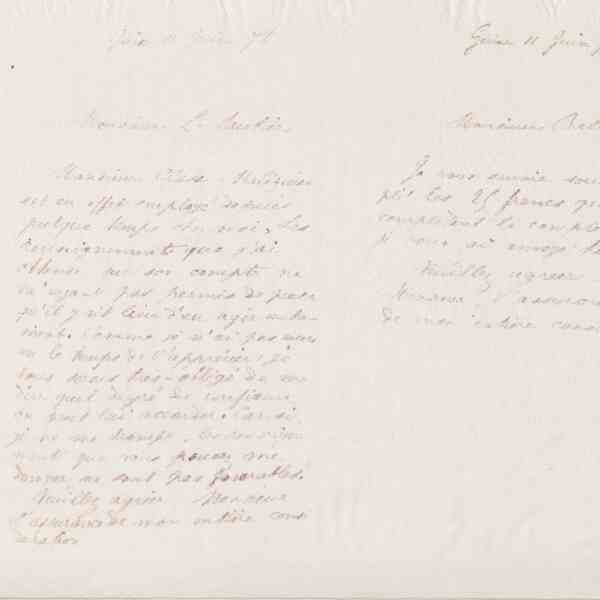 Guise 11 Juin 7
Monsieur
Monsieur
est en effet employé depuis
quelque temps chez moi. Les
renseignements que j'ai
obtenus sur son compte ne
m'ayant pas permis de
qu'il y ait lieu d'en agir autre-
ment. Comme je n'ai pas encore
eu le temps de l'apprécier, je
vous serais très-obligé de me
dire quel degré de confiance
on peut lui accorder. Car si
je ne me trompe, les renseigne-
ments que vous pouvez me
donner ne sont pas favorables.
Veuillez agréer, Monsieur
l'assurance de mon entière consi
dération
Guise 11 Juin
Monsieur
Je vous envoie sous
pli les 25 francs
complétant le compte
je vous ai envoyé
Veuillez agréer
Monsieur l'assurance
de mon entière consi